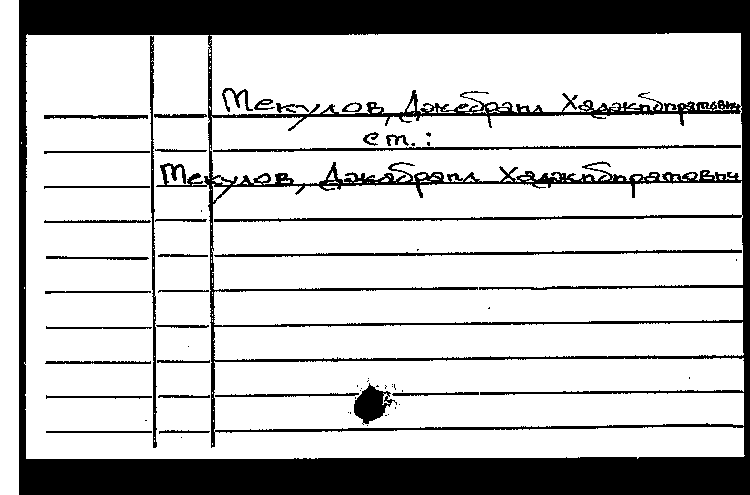 Мекулов, Джебраил Хаджибиратович
см.:
Мекулов, Джабраил Хаджибиратович